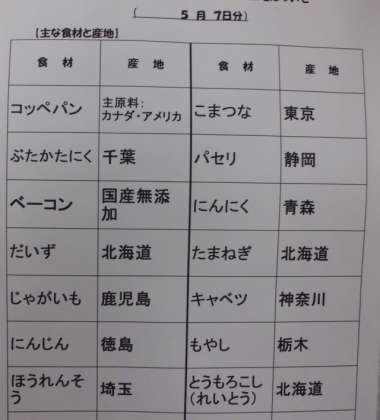 ( 5 月 7日分)
【主な食材と産地】
食 材 産 地 食 材 産 地
コッペパン 主原料:カナダ・アメリカ こまつな 東京
ぶたかたにく 千葉 パセリ 静岡
ベーコン 国産無添加 にんにく 青森
だいず 北海道 たまねぎ 北海道
じゃがいも 鹿児島 キャベツ 神奈川
にんじん 徳島 もやし 栃木
ほうれんそう 埼玉 とうもろこし(れいとう) 北海道